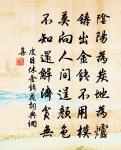 陰陽為炭地為爐
鑄出金錢不用模
莫向人間逞顏色
不知還解濟貧無
皮日休金錢花詩典網